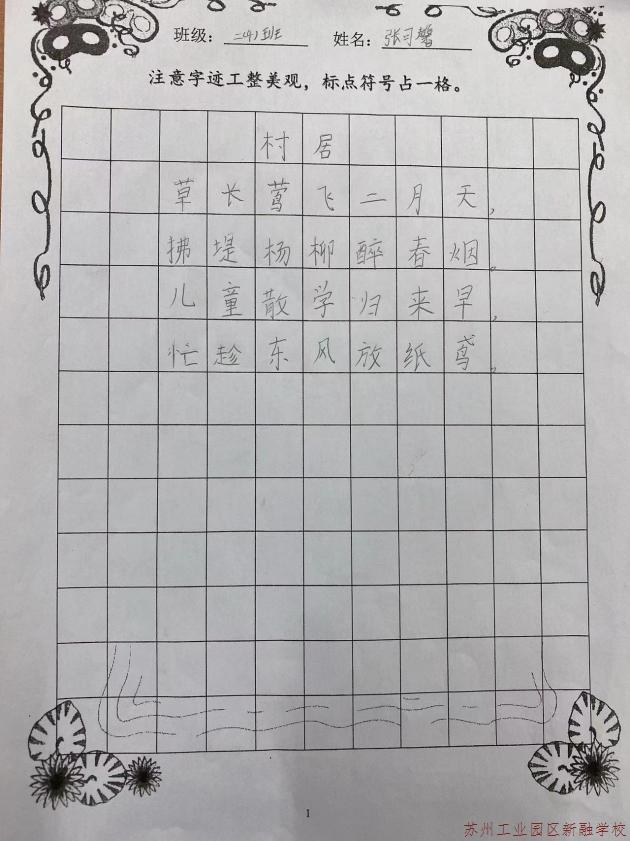 班级：二(4)班 姓名：张习馨
注意字迹工整美观，标点符号占一格。
村居
草长莺飞二月天，
拂堤杨柳醉春烟。
儿童散学归来早，
忙趁东风放纸鸢。
1
苏州工业园区新融学校